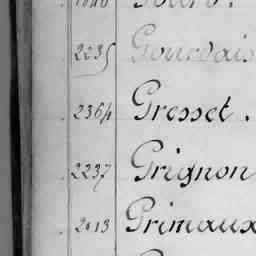 2235 Gourdais
2364 Gresset.
2237 Grignon
2013 Primaux